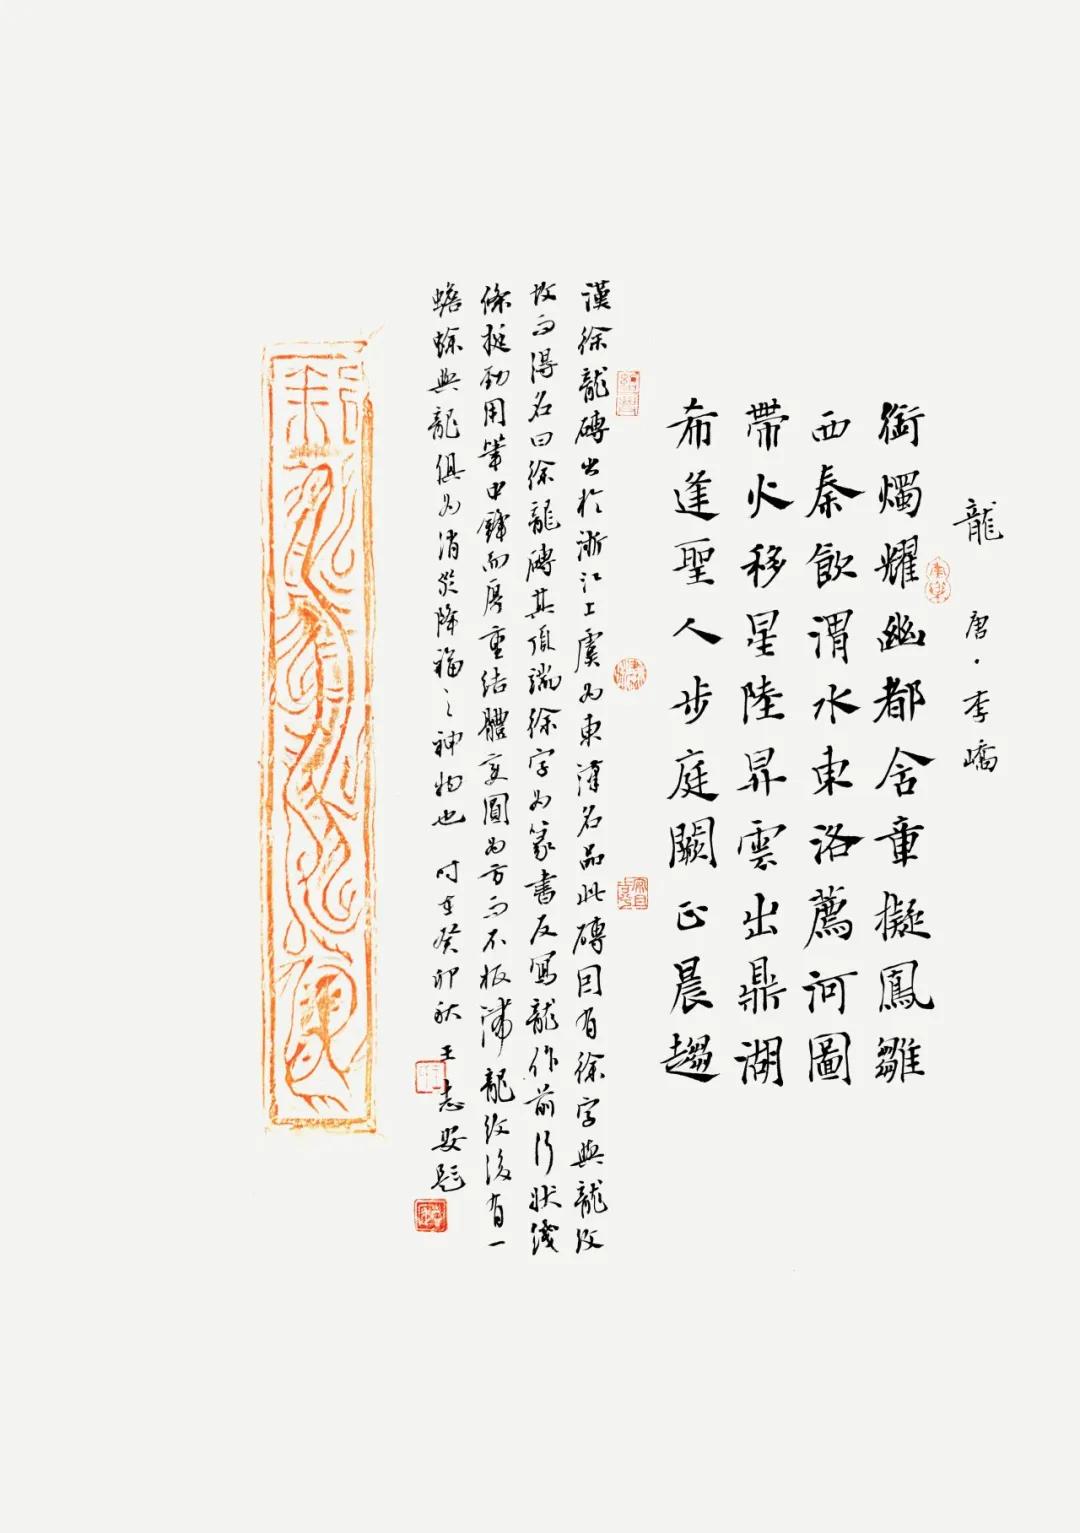 龍 唐·李嶠
銜燭耀幽都含章擬鳳雛
西秦飲渭水東洛薦河圖
帶火移星陸昇雲出鼎湖
希逢聖人步庭闕正晨趨
漢徐龍磚出於浙江上虞為東漢名品此磚因有徐字與龍紋
故而得名曰徐龍磚其頂端徐字為篆書反寫龍作前行狀綫
條挺勁用筆中鋒而厚重結體變圓為方而不板滯龍紋後有一
蟾蜍與龍俱為消災降福之神物也 時在癸卯秋 王志安題